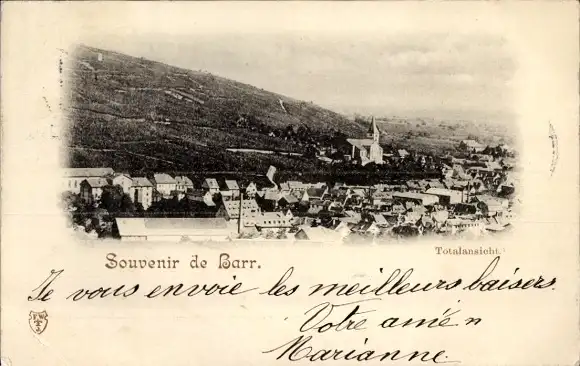 Totalansicht.
Souvenir de Barr.
Je vous envoie les meilleurs baisers.
Votre amie
Marianne